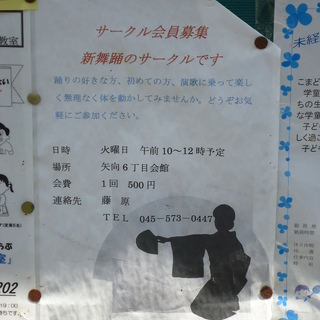 サークル会員募集
新舞踊のサークルです
踊りの好きな方、初めての方、演歌に乗って楽し
く無理なく体を動かしてみませんか。どうぞお気
軽にご参加ください。
日時 火曜日 午前10~12時予定
場所 矢向6丁目会館
会費 1回 500円
連絡先 藤原
TEL 045-573-0447
教室
202
未経
こまど
学童
ちの生
な学童
子ども
しく過
子ども